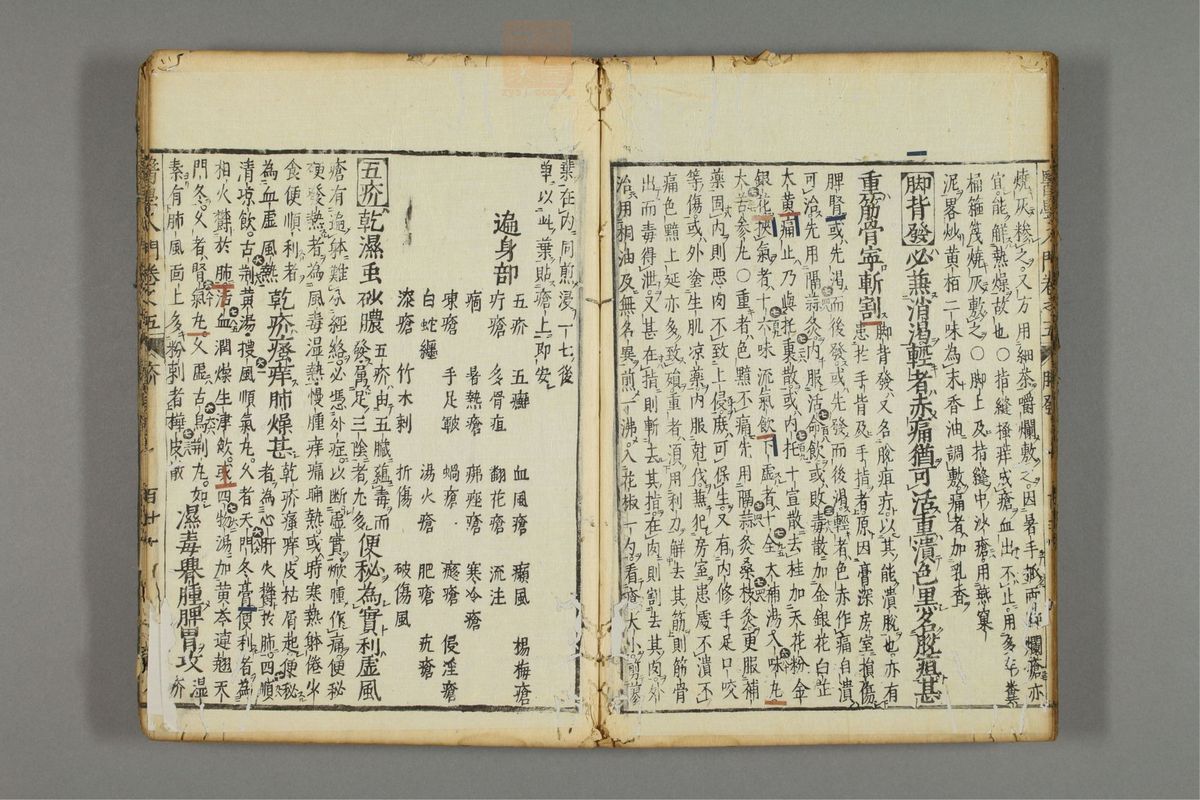 燒灰糝之又方用細茶嚼爛敷之因暑手抓兩脚爛瘡亦
宜能解熱燥故也○指縫搔痒成瘡血出不止用多年糞
桶箍篾燒灰敷之○脚上及指縫中沙瘡用燕窠
泥畧炒黄栢二味為末香油調敷痛者加乳香
脚背發必兼消渴輕者赤痛猶可活重潰色黒名脫疽甚
重筋骨寧斬割脚背發又名脫疽疔以其能潰脫也亦有
患於手背及手指者原因膏深房室損傷
脾腎或先渴而後發或先發而後渴輕者色赤作痛自潰
可治先用隔蒜灸内服活命飲或敗毒散加金銀花白芷
大黄痛止乃與托裏散或内托十宣散去桂加天花粉
銀花挾氣者十六味流氣飲下虚者十全大補湯八味丸
大苦参丸○重者色黯不痛先用隔蒜灸桑枝灸更服補
藥固内則悪肉不致上侵庶可保生又有内修手足口咬
等傷或外塗生肌凉藥内服尅伐兼犯房室患處不潰不
痛色黯上延亦多致殞重者須用利刀解去其筋則筋骨
出而毒得泄又甚在指則斬去其指在肉則割去其肉外
治用桐油及無名異煎一沸入花椒一勺看瘡大小剪蓼
葉在内同煎浸一七後
單以此葉貼瘡上即安
遍身部
五疥 五癬 血風瘡 癩風 楊梅瘡
疔瘡 多骨疽 翻花瘡 流注
瘑 暑熱瘡 痱痤瘡 寒冷瘡
凍瘡 手足皸 蝸瘡 瘾瘡 侵淫瘡
白蛇纏 湯火瘡 肥瘡 疣瘡
漆瘡 竹木刺 折傷 破傷風
五疥乾濕虫砂膿五疥由五臓蘊毒而
發属足三陰者尤多便秘為實利虚風
瘡有遍躰難分經絡必憑外症以断虚實焮腫作痛便秘
硬發熱者為風毒湿熱慢腫痒痛晡熱或時寒熱躰倦少
食便順利者
為血虚風熱乾疥瘙痒肺燥甚乾疥瘙痒皮枯屑起便秘
者為心肝火欝於肺四順
清凉飲古荊黄湯搜風順氣丸久者天門冬膏便利者為
相火欝於肺活血潤燥生津飲或四物湯加黄芩連翹天
門冬久者腎氣丸又虚古烏荊丸如
素有肺風面上多粉刺者樺皮散濕毒㿋腫脾胃攻湿
疥